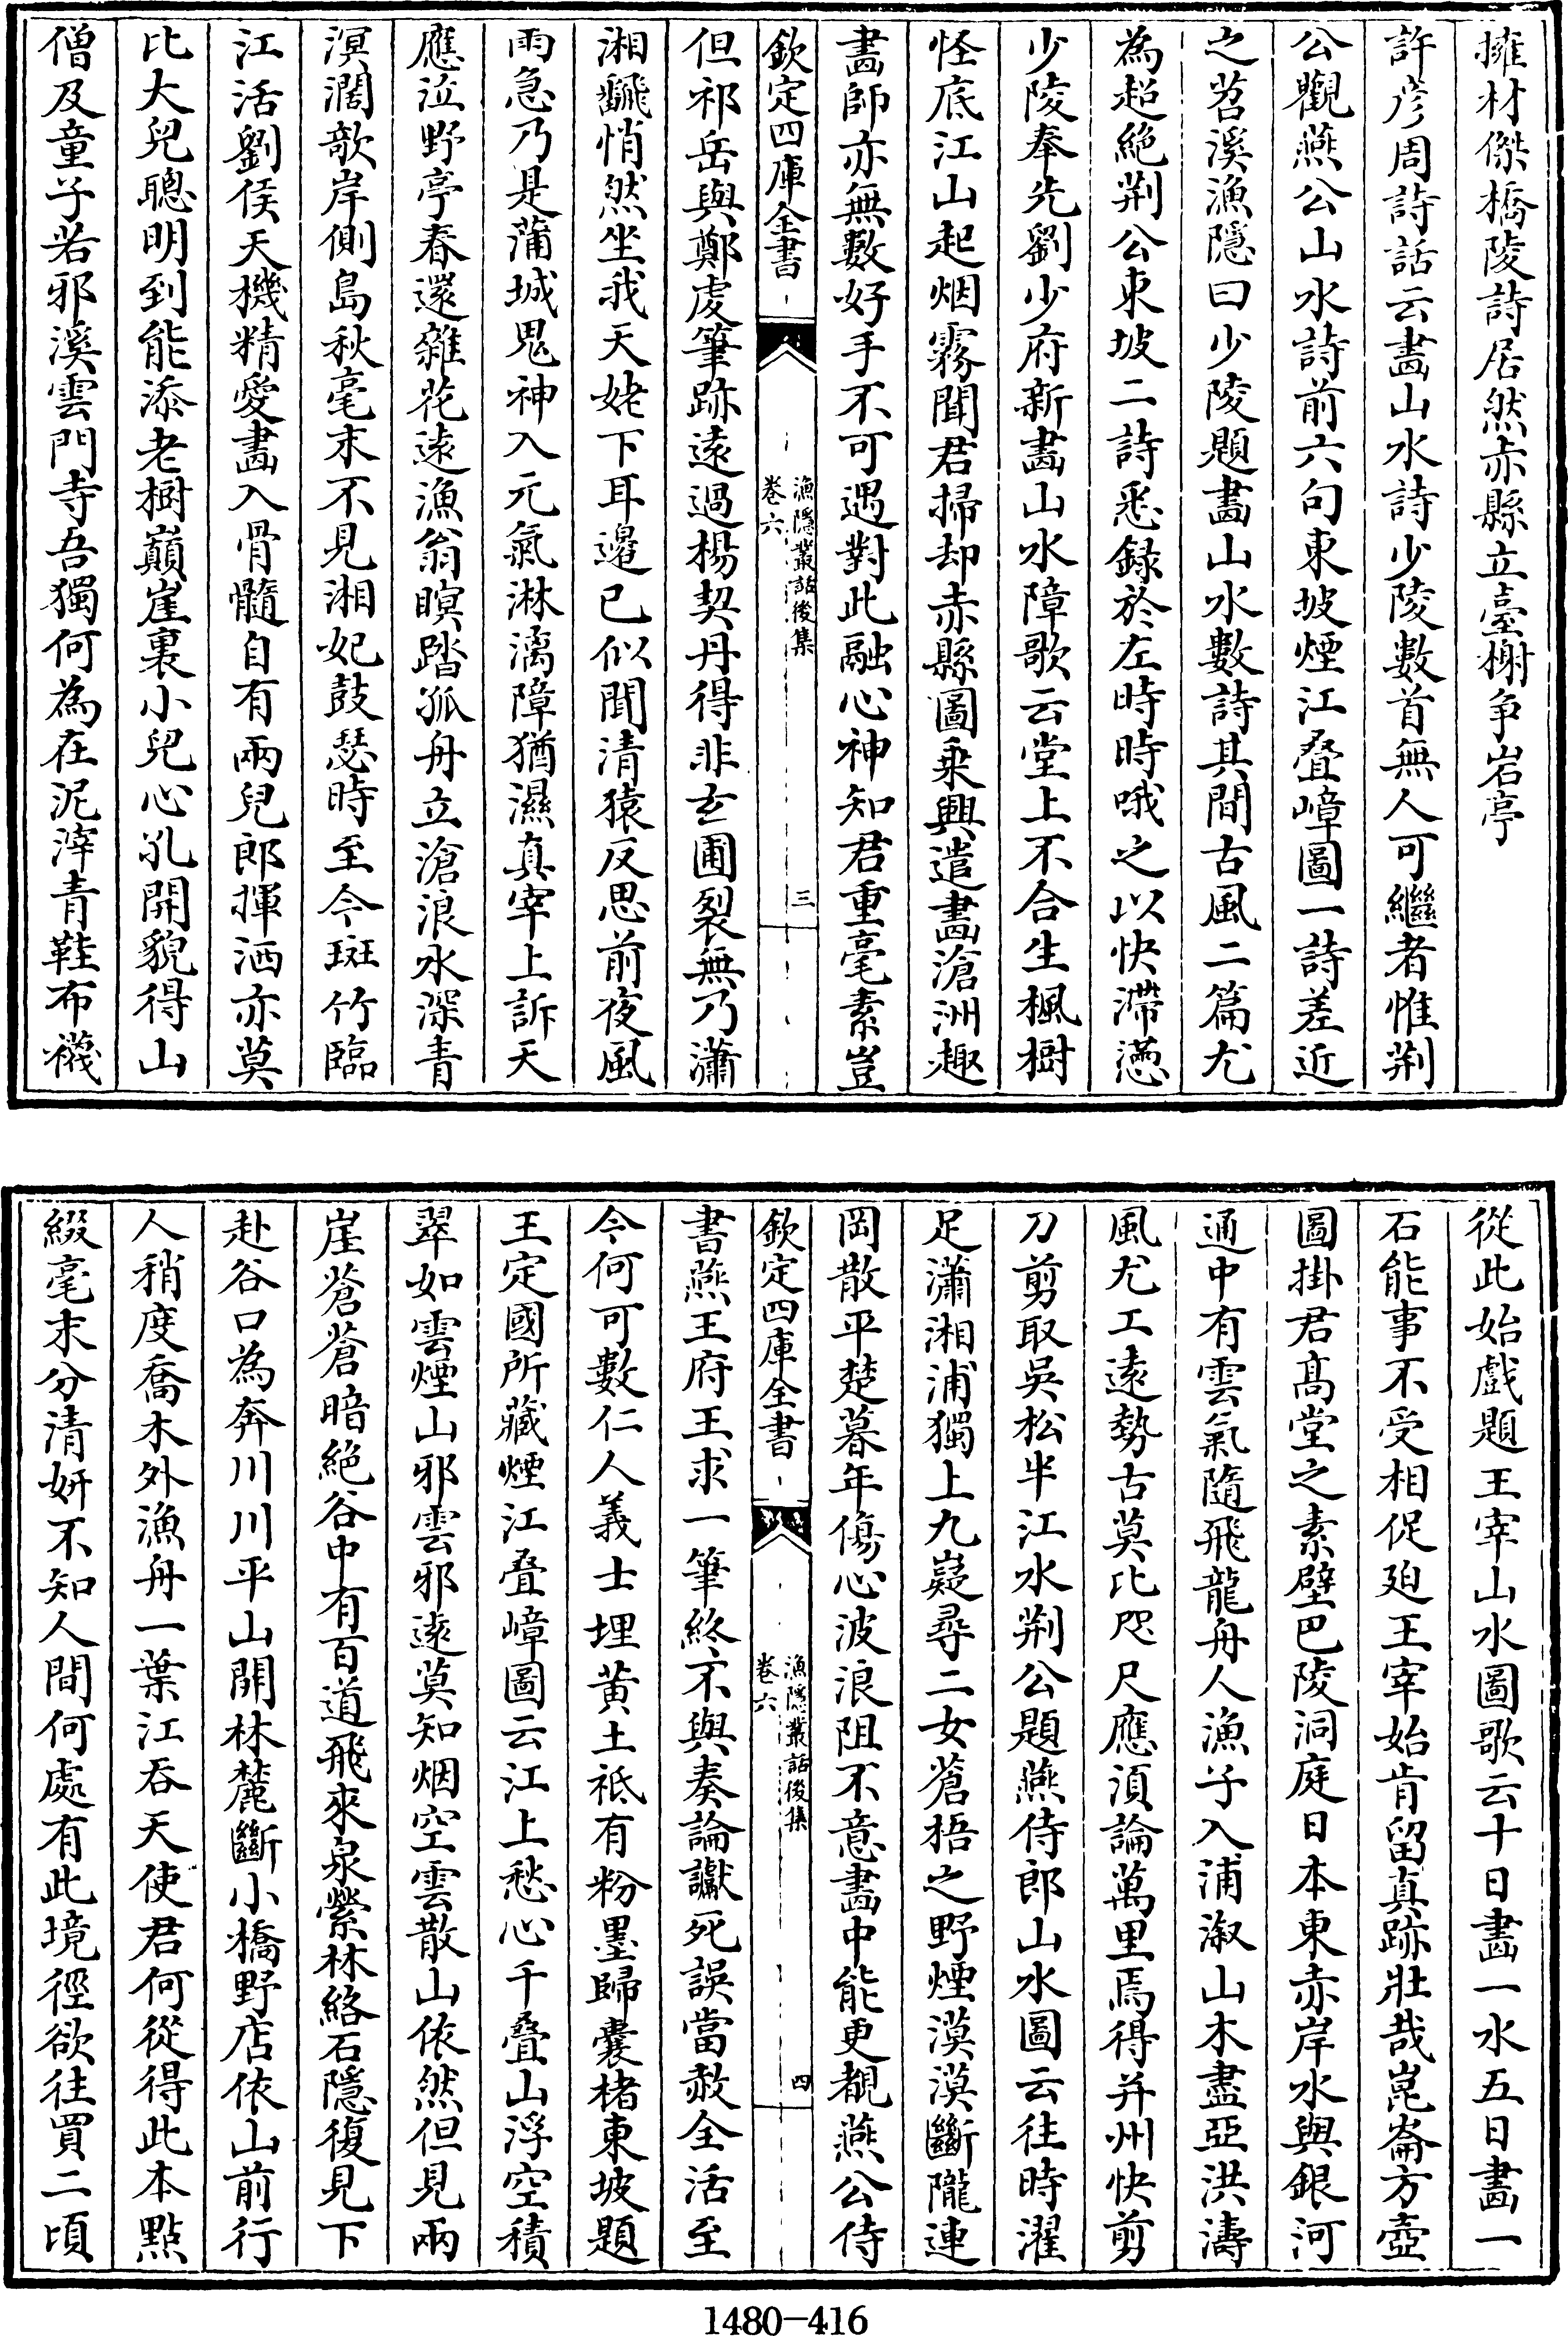 擁材傑橋陵詩居然赤縣立臺榭争岩亭
許彦周詩話云畵山水詩少陵數首無人可繼者惟荆
公觀燕公山水詩前六句東坡煙江疊嶂圖一詩差近
之苕溪漁隠曰少陵題畵山水數詩其間古風二篇尤
為超絶荆公東坡二詩悉録於左時時哦之以快滯懣
少陵奉先劉少府新畵山水障歌云堂上不合生楓樹
怪底江山起烟霧聞君掃却赤縣圖乗興遣畵滄洲趣
畵師亦無數好手不可遇對此融心神知君重毫素豈
欽定四庫全書
漁隠叢話後集
卷六
三
但祁岳與鄭虔筆跡逺過楊契丹得非玄圃裂無乃瀟
湘飜悄然坐我天姥下耳邊已似聞清猿反思前夜風
雨急乃是蒲城鬼神入元氣淋漓障猶濕真宰上訴天
應泣野亭春還雜花逺漁翁暝踏孤舟立滄浪水深青
溟濶欹岸側島秋毫末不見湘妃鼓瑟時至今斑竹臨
江活劉侯天機精愛畵入骨髓自有兩兒郎揮洒亦莫
比大兒聰明到能添老樹巔崖裏小兒心孔開貌得山
僧及童子若邪溪雲門寺吾獨何為在泥滓青鞋布襪
從此始戲題王宰山水圖歌云十日畵一水五日畵一
石能事不受相促廹王宰始肯留真跡壯哉崑崙方壺
圖掛君髙堂之素壁巴陵洞庭日本東赤岸水與銀河
通中有雲氣隨飛龍舟人漁子入浦溆山木盡亞洪濤
風尤工逺勢古莫比咫尺應湏論萬里焉得并州快剪
刀剪取吳松半江水荆公題燕侍郎山水圖云往時濯
足瀟湘浦獨上九嶷尋二女蒼梧之野煙漠漠斷隴連
岡散平楚暮年傷心波浪阻不意畵中能更覩燕公侍
欽定四庫全書
漁隠叢話後集
卷六
四
書燕王府王求一筆終不與奏論讞死誤當赦全活至
今何可數仁人義士埋黄土祗有粉墨歸囊楮東坡題
王定國所藏煙江疊嶂圖云江上愁心千疊山浮空積
翠如雲煙山邪雲邪逺莫知烟空雲散山依然但見兩
崖蒼蒼暗絶谷中有百道飛來泉縈林絡石隠復見下
赴谷口為奔川川平山開林麓斷小橋野店依山前行
人稍度喬木外漁舟一葉江吞天使君何從得此本點
綴毫末分清妍不知人間何處有此境徑欲往買二頃
1480-416